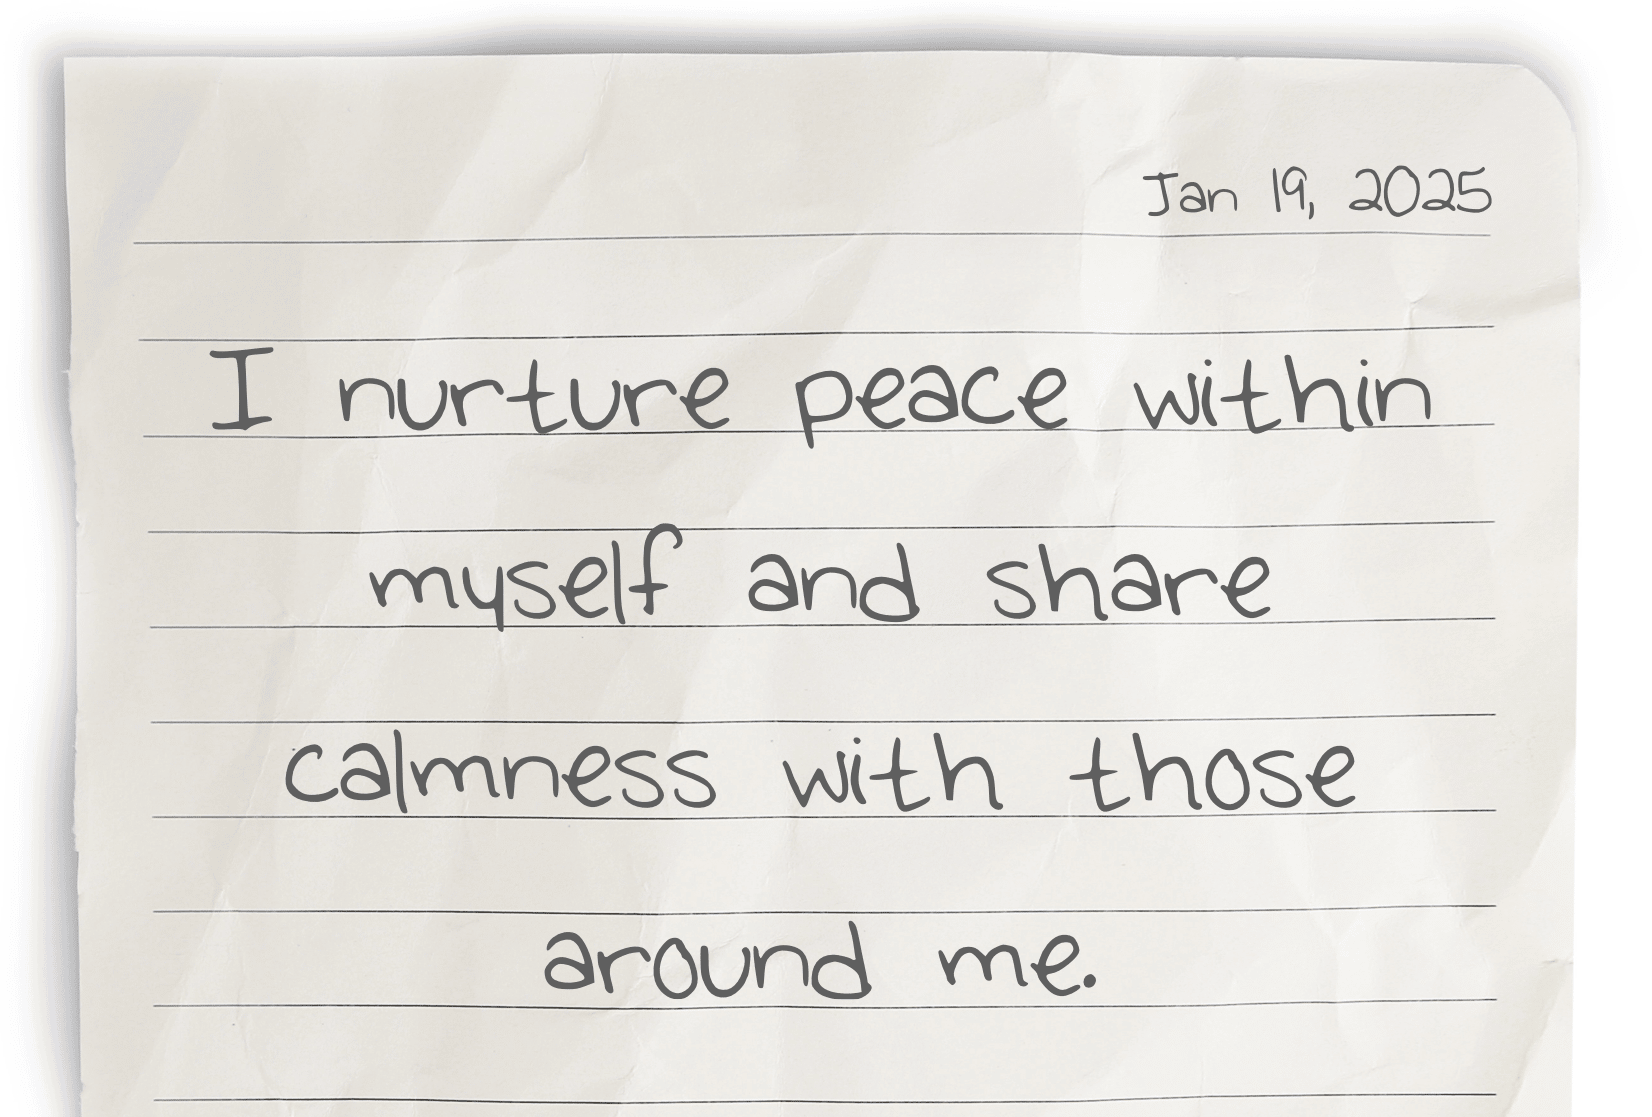 Jan 19, 2025
I nurture peace within
myself and share
calmness with those
around me.